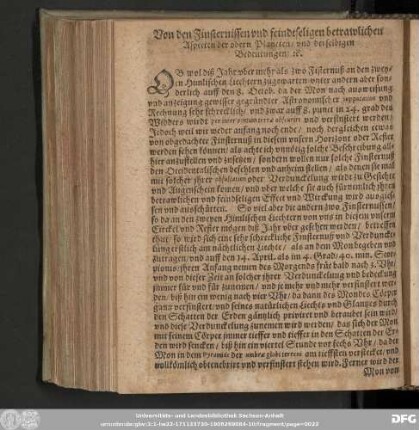 Von den Finsternissen vnd feindseligen betrawlichen
Aspecten der obern Planeten, vnd derselbigen
Bedeutungen, ꝛc.
OB wol diß Jahr vber mehr als zwo Finsternuß an den zweyen
Himlischen Liechtern zugewarten vnter andern aber son-
derlich auff den 8. Octob. da der Mon nach anweisung
vnd anzeigung gewisser gegründter Astronomischer supputation vnd
Rechnung sehr schrecklich, vnd zwar auff 8. punct in 14. grad des
Widders wirdt vnd verfinstert werden/
Jedoch weil wir weder anfang noch ende/ noch dergleichen etwas
von obgedachter Finsternuß in diesem vnsern Horizont oder Refier
werden sehen können/ als achte ich vnnötig solche Beschreibung all-
hier anzustellen vnd zusetzen/ sondern wollen nur solche Finsternuß
den Occidentalischen befehlen vnd anheim stellen/ als denen sie mal
mit solcher ihrer obscuration oder Verdunckelung wirdt zu Gesichte
vnd Augenschein komen/ vnd vber welche sie auch fürnemlich ihren
betrawlichen vnd feindseligen Effect vnd Wirckung wird ausgies-
sen vnd ausschütten. So viel aber die andern zwo Finsternussen/
so da an den zweyen Himlischen Liechtern von vns in diesem vnserm
Circkel vnd Refier mögen diß Jahr vber gesehen werden/ betreffen
thut/ so wird sich eine sehr schreckliche Finsternuß vnd Verduncke-
lung erstlich am nächtlichen Liechte/ als an dem Mon begeben vnd
zutragen/ vnd auff den 14. April. als im 4. Grad/ 40. min. Scor-
pionis/ ihren Anfang nemen des Morgends früe bald nach 2. Vhr/
vnd von dieser Zeit an solcher ihrer Verdunckelung vnd bedeckung
immer für vnd für zunemen/ vnd je mehr vnd mehr verfinstert wer-
den/ biß hin ein wenig nach vier Vhr/ da dann des Mondes Cörper
gantz verfinstert/ vnd seines natürlichen Liechts vnd Glantzes durch
den Schatten der Erden gäntzlich privirt vnd beraubet sein wird/
vnd diese Verdunckelung zunemen wird werden/ das sich der Mon
mit seinem Cörper immer tieffer vnd tieffer in den Schatten der Er-
den wird sencken/ biß hin ein viertel Stunde vor sechs Vhr/ da der
Mon in dem Pyramide der umbra globi terreni am tieffsten verstecket/ vnd
vollkömlich obtenebrirt vnd verfinstert stehen wird. Ferner wird der
Mon von
Universitäts- und Landesbibliothek Sachsen-Anhalt